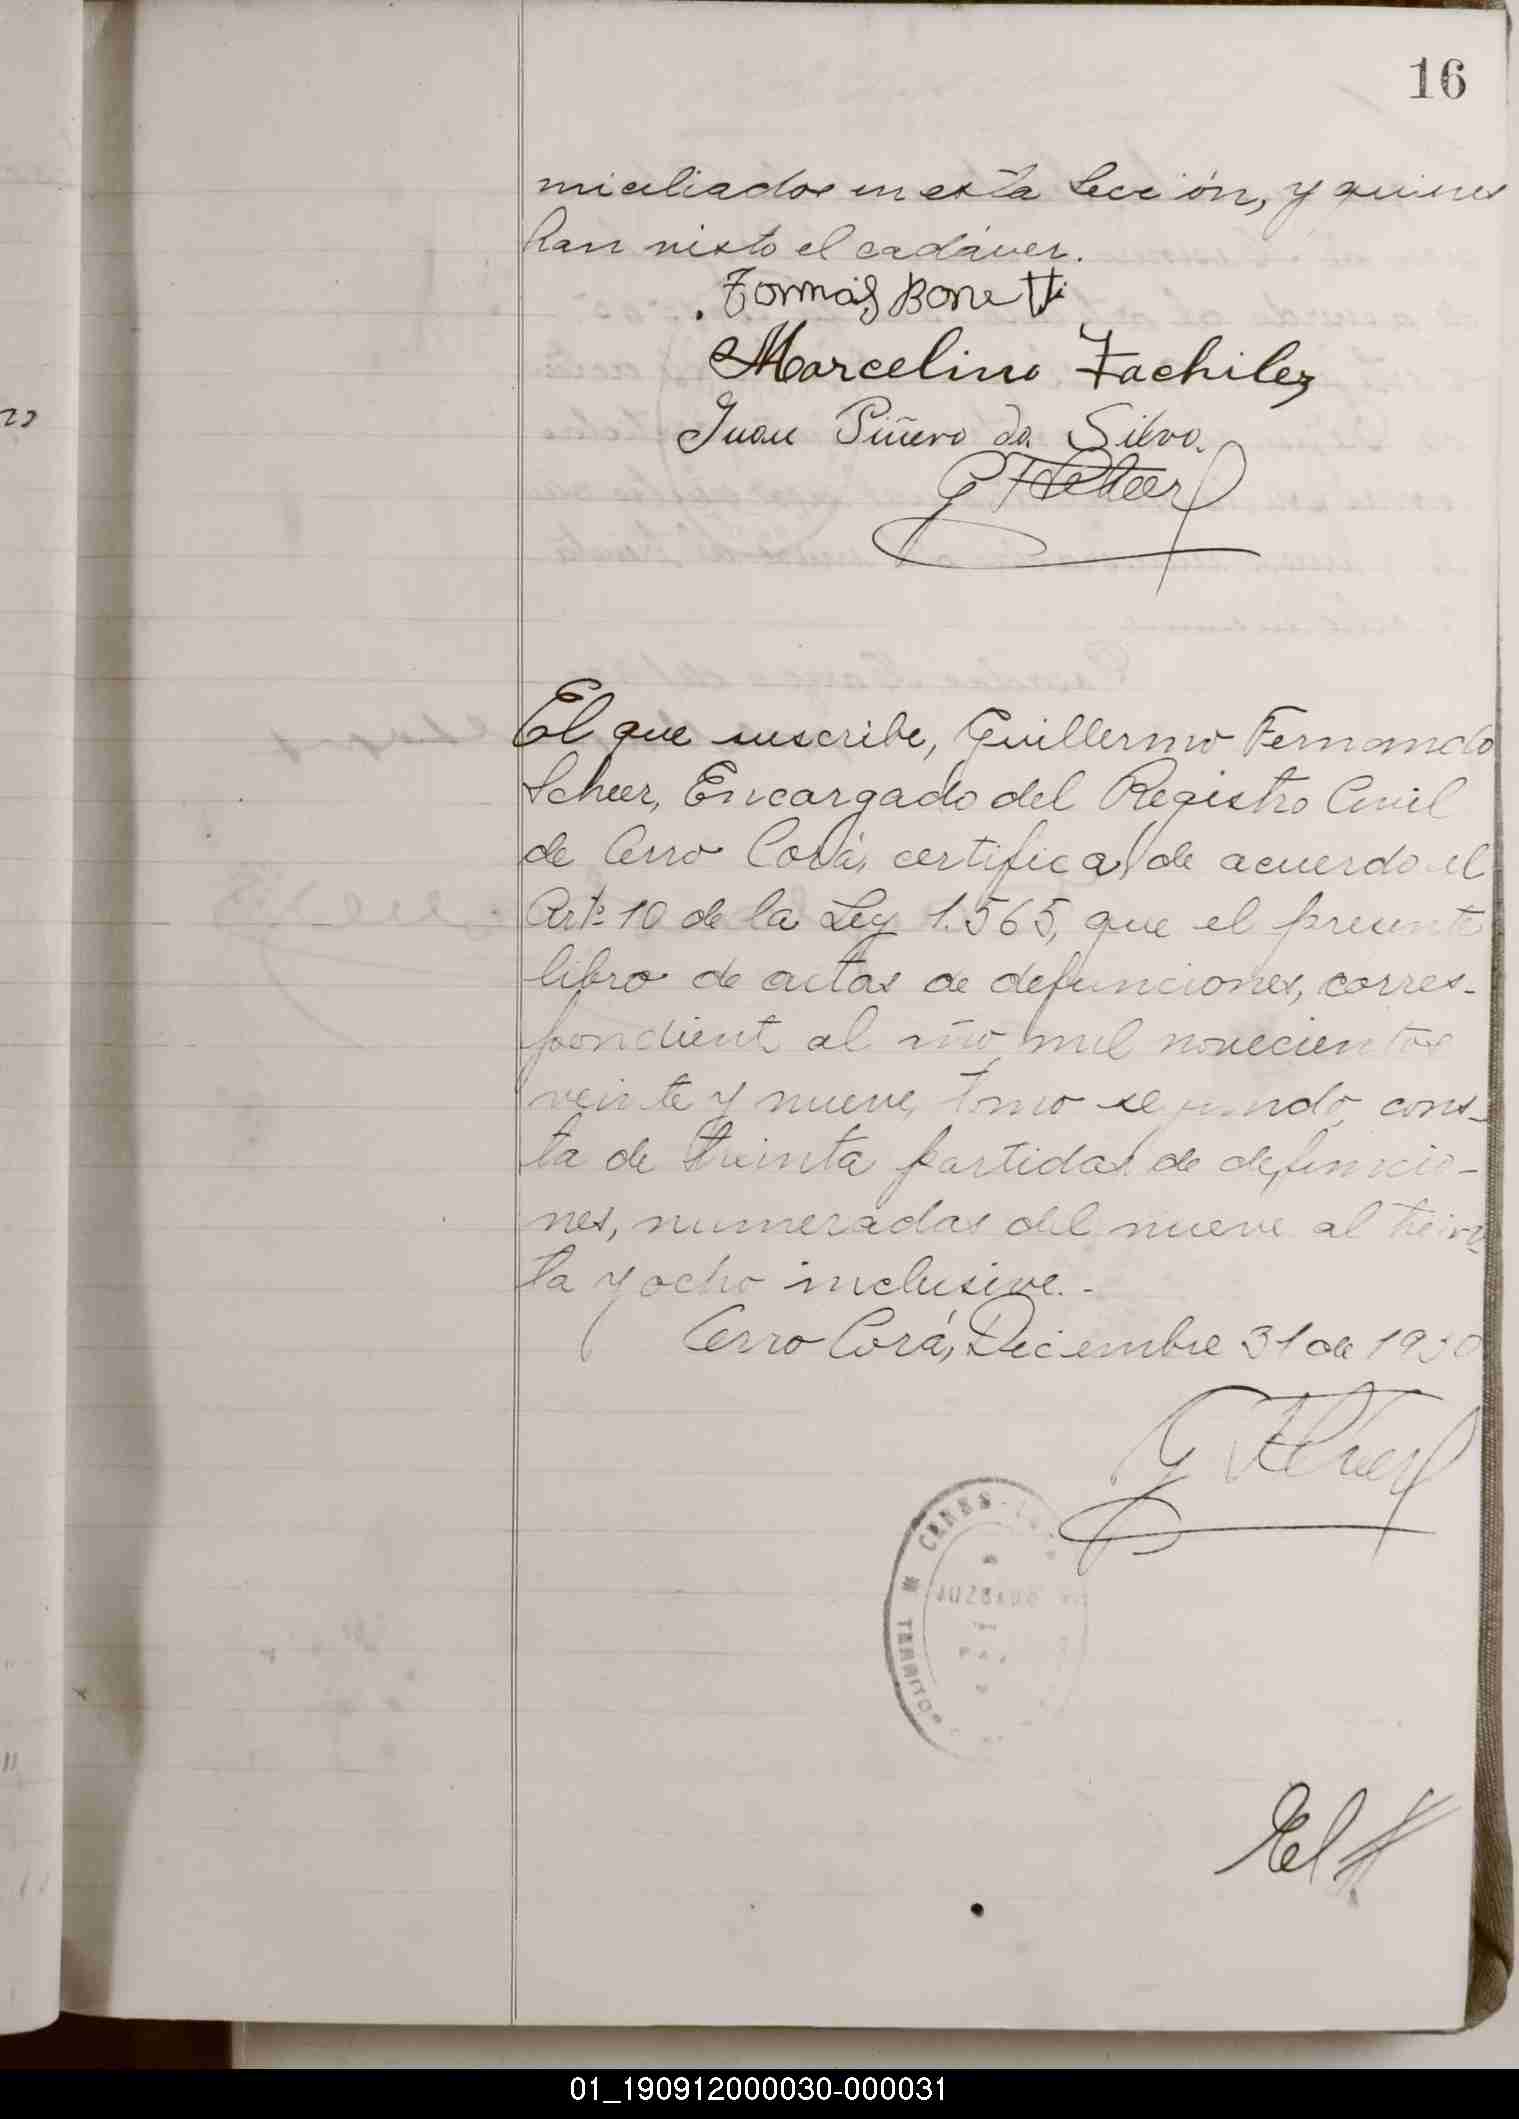 16
miciliados en esta Sección, y quienes
han visto el cadáver.
Tomás Bonetti
Marcelino Fachilez
Juan Piñero da Silva.
G F Scheer
El que suscribe, Guillermo Fernando
Scheer, Encargado del Registro Civil
de Cerro Corá, certifica, de acuerdo el
Artº 10 de la Ley 1.565, que el presente
libro de actas de defunciones, corres-
pondient al año mil novecientos
veinte y nueve, tomo segundo, cons-
ta de treinta partidas de defuncio-
nes, numeradas del nueve al trein-
ta y ocho inclusive.-
Cerro Corá, Diciembre 31 de 1930
G F Scheer
JUZGADO
PAZ
TERRITO
El
01_190912000030-000031